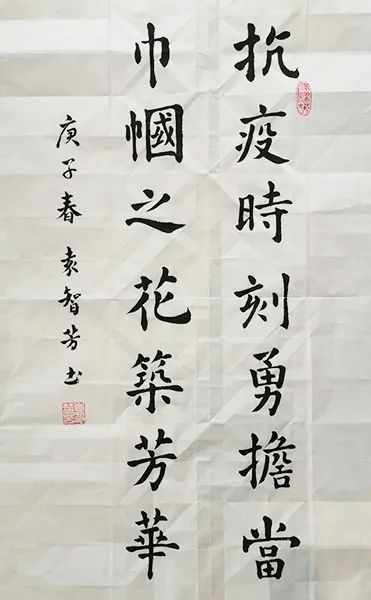 抗疫時刻勇擔當
巾幗之花築芳華
庚子春 袁智芳书